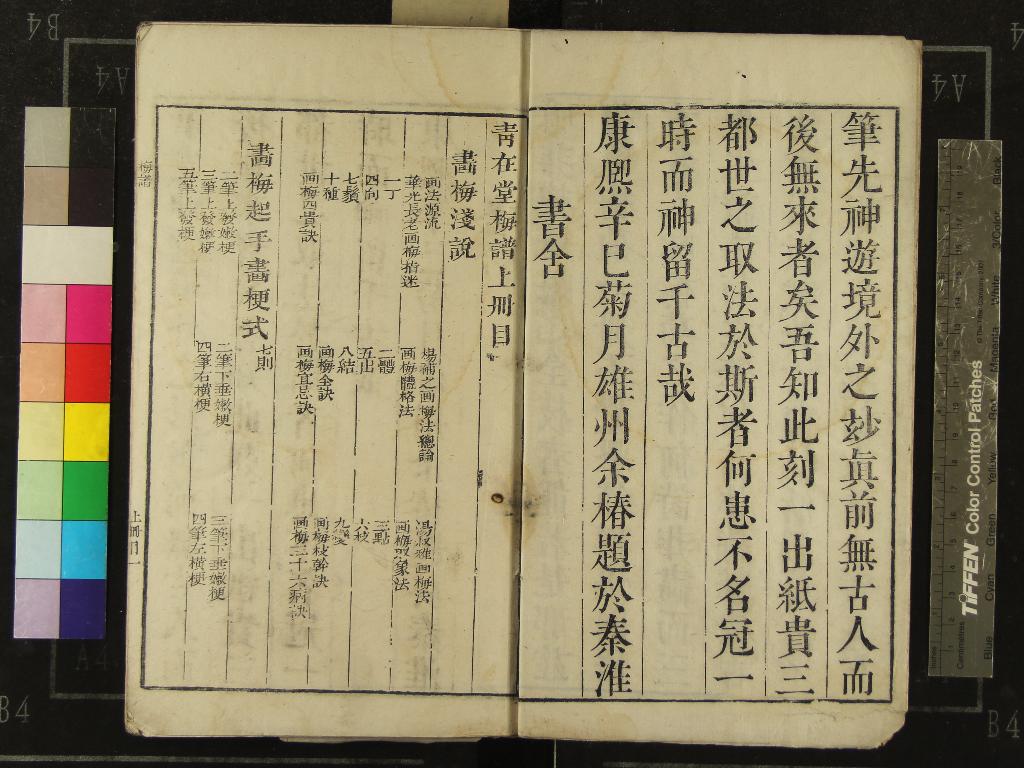 筆先神遊境外之玅眞前無古人而
後無來者矣吾知此刻一出紙貴三
都世之取法於斯者何患不名冠一
時而神留千古哉
康熈辛巳菊月雄州余椿題於秦淮
書舍
靑在堂梅譜上册目
畫梅淺說
画法源流
楊補之画梅法總論
湯叔雅画梅法
華光長老画梅指迷
画梅體格法
画梅取象法
一丁
二體
三點
四向
五出
六枝
七鬚
八結
九變
十種
画梅全訣
画梅枝幹訣
画梅四貴訣
画梅宜忌訣
画梅三十六病訣
畫梅起手畫梗式
七則
二筆上發嫩梗
二筆下垂嫩梗
三筆下垂嫩梗
三筆上發嫩梗
四筆右橫梗
四筆左橫梗
五筆上發梗
梅譜
上册目一
TIFFEN Color Control Patches
Centimetres
Inches
Blue
Cyan
Green
Yellow
Magenta
White
Black
B4
A4
A4
A4
B4
B4